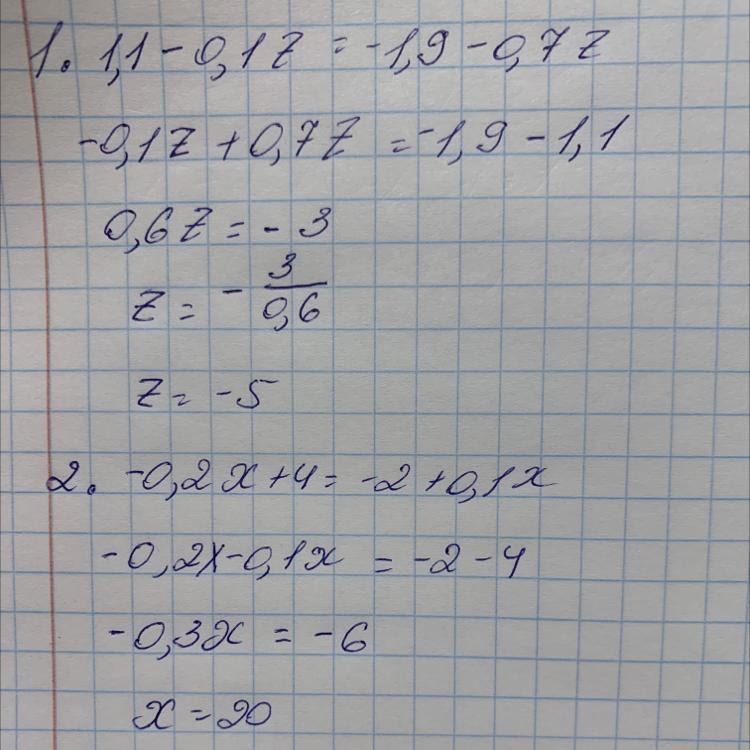 1. 1,1 - 0,1z = -1,9 - 0,7z
-0,1z + 0,7z = -1,9 - 1,1
0,6z = - 3
z = - 3/0,6
z = -5
2. -0,2x + 4 = -2 + 0,1x
-0,2x - 0,1x = -2 - 4
-0,3x = -6
x = 20